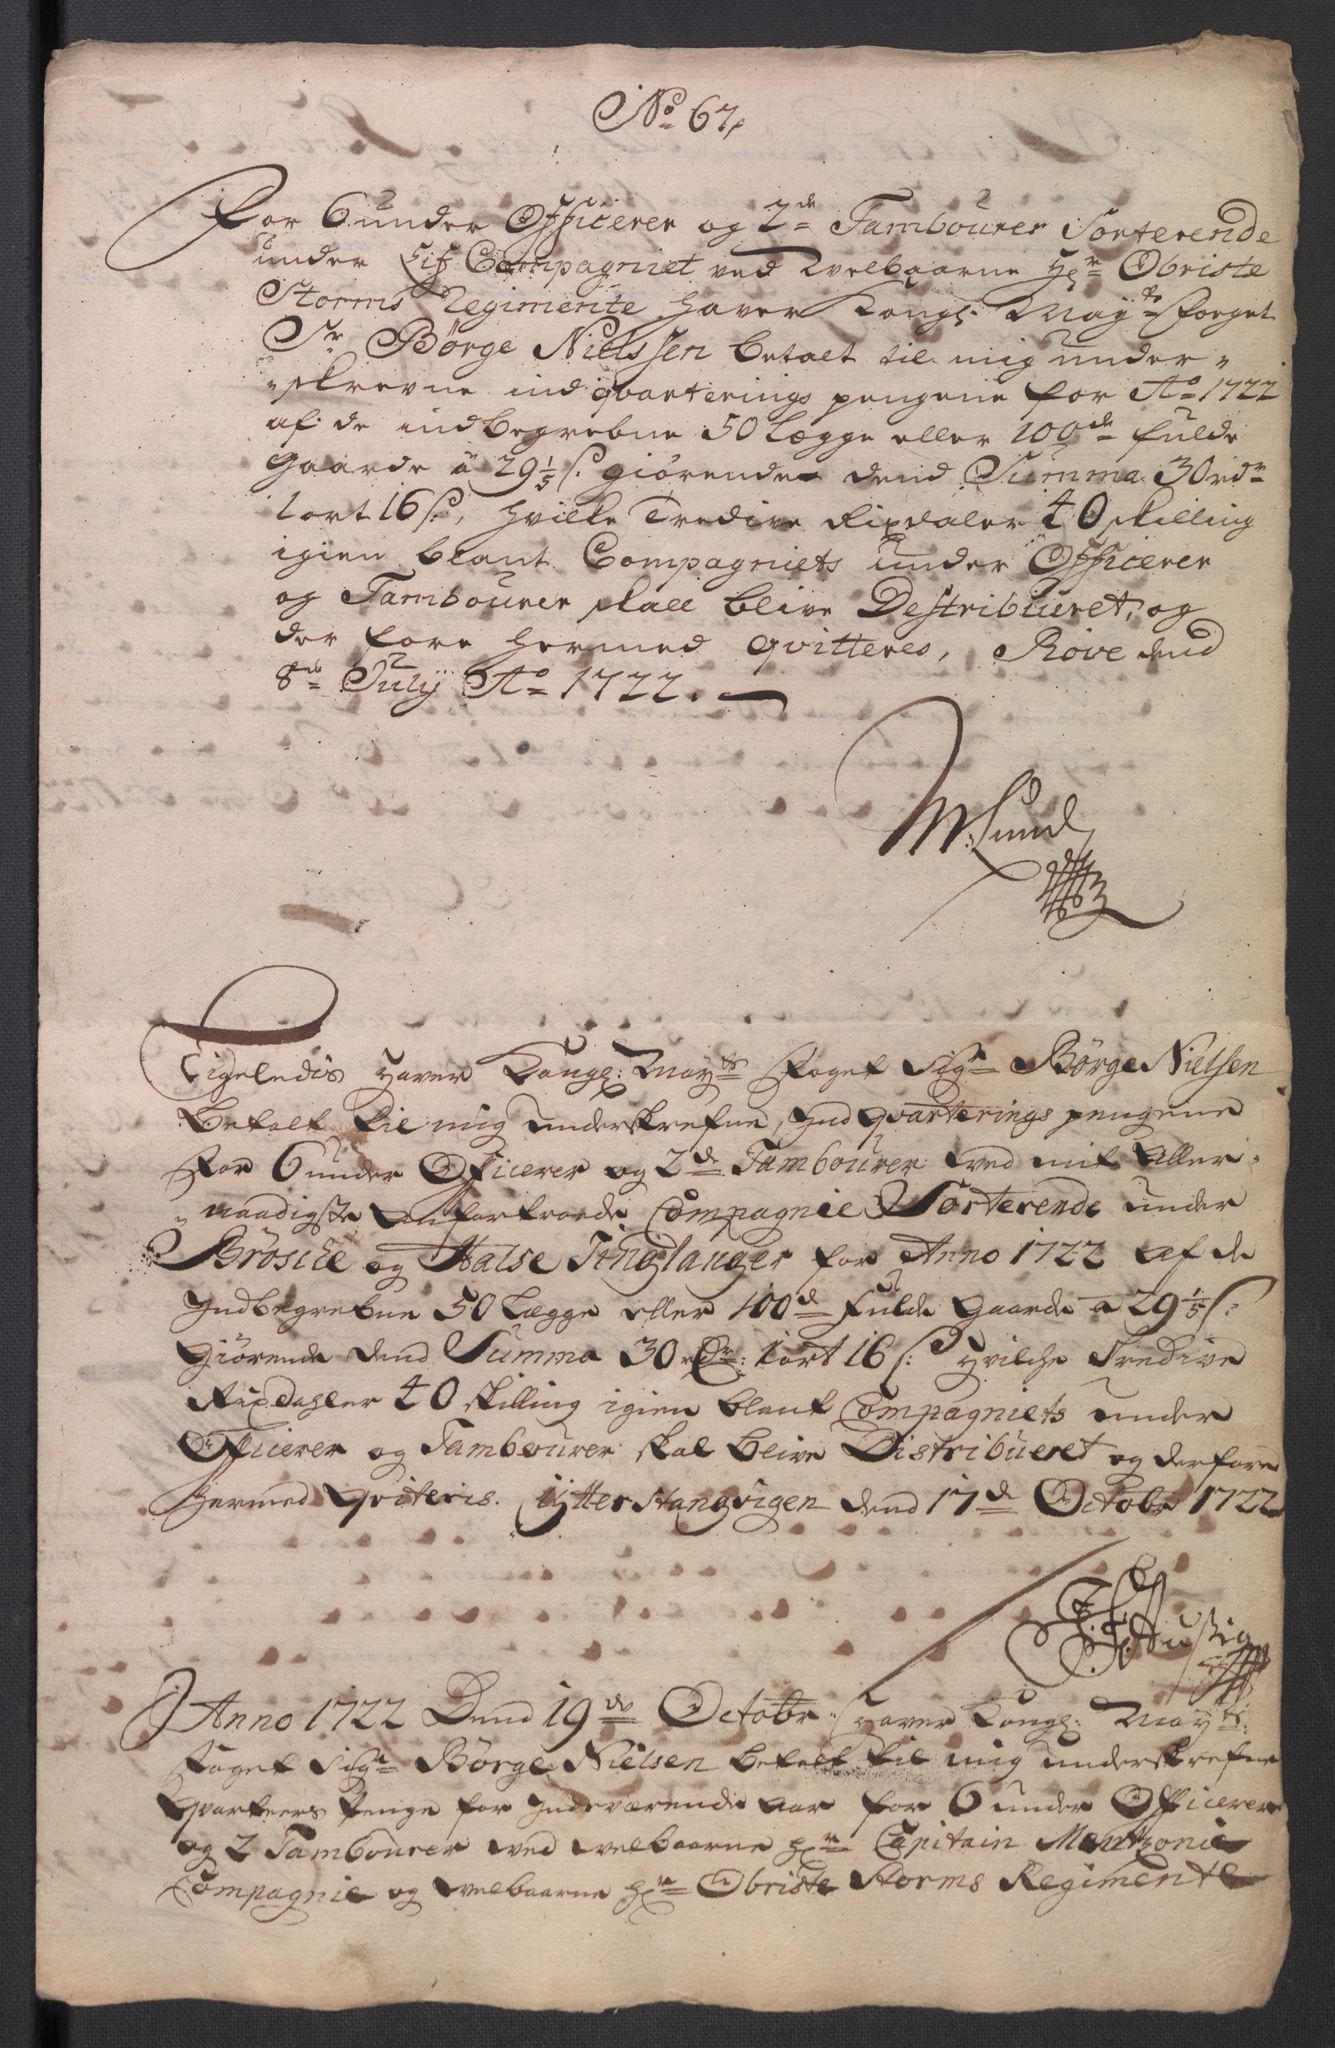 No 67,
For 6 under Officerer og 2de Tambourer Sorterende
under Lif Compagniet ved Welbaarne Hr Obriste
Storms Regimente, haver Kongl: Mayts Foget
Sr Børge Nielssen betalt til mig under-
skrevne indqvarterings pengene for Ao 1722
af de indbegrebne 50 Lægge eller 100de fulde
Gaarde á 29 1/5 s. giørende dend Summa 30 rdr
1 ort 16 s, hvilke Tredive Rixdaler 40 skilling
igien blant Compagniets under Officerer
og Tambourer skall blive Destribueret, og
der fore hermed qvitteres, Røve dend
8de July Ao 1722.
M: Lund
Ligeledis Haver Kongl: Mayts Foget Sigr Børge Nielsen
betalt til mig underskrefne, Indqvarterings pengene
For 6 under Officerer og 2de Tambourer ved mit aller-
naadigste anfortroede Compagnie Sorterende under
Brøske og Halse Tinglauger for Anno 1722 af de
Indbegrebne 50 Lægge eller 100de Fulde Gaarde a 29 1/5 s:
Giørende dend Summa 30 rdr: 1 ort 16 s: Hvilche Tredive
Rixdahler 40 skilling igien blant Compagniets under
Officerer og Tambourer skal blive Distribueret og derfore
Hermed Qviteris. Ytter Stangvigen dend 17de Octobr 1722
Anno 1722 Dend 19de Octobr: Haver Kongl: Mayts:
Foget Sigr Børge Nielsen betalt til mig underskrefne
Qvarteers Penge for Indeværende aar for 6 under Officerer
og 2 Tambourer ved Welbaarne Hr Capitain
Compagnie og Welbaarne Hr Obriste Storms Regimente